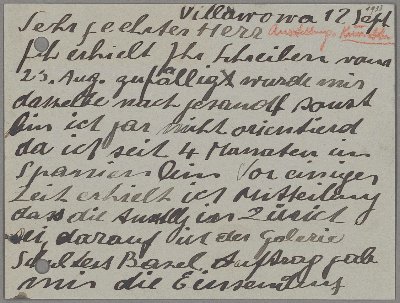 Villanova 12 Sept 1933
Sehr geehrter Herr
Ausstellung
Ich erhielt Ihr Schreiben vom
23. Aug. zufällig wurde mir
dasselbe nach gesandt sonst
bin ich gar nicht orientierd
da ich seit 4 Monaten in
Spanien bin Vor einiger
Zeit erhielt ich Mitteilung
dass die in Zürich
sei darauf ist der Galerie
Basel Auftrag gab
mir die Einsendung